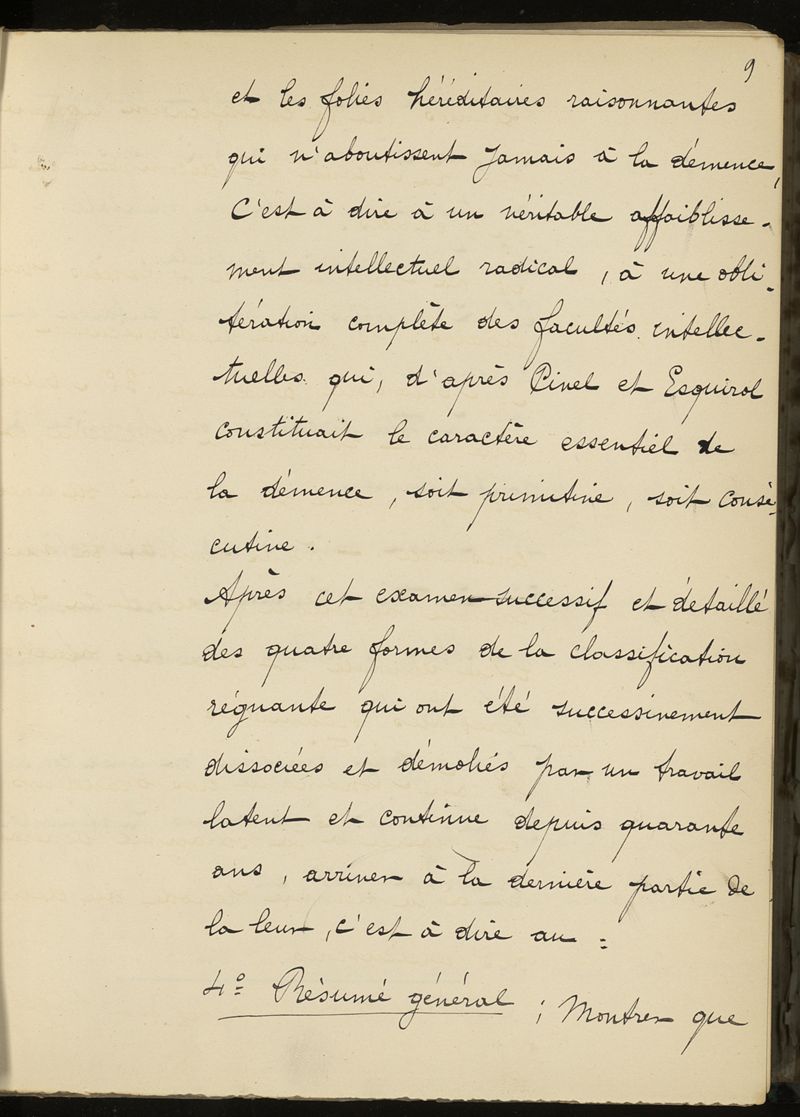 9
et les folies héréditaires raisonnantes
qui n'aboutissent jamais à la démence,
C'est à dire à un véritable affaiblisse-
ment intellectuel radical, à une obli-
tération complète des facultés intellec-
tuelles qui, d'après Pinel et Esquirol
constituait le caractère essentiel de
la démence, soit primitive, soit consé-
cutive.
Après cet examen successif et détaillé
des quatre formes de la classification
régnante qui ont été successivement
dissociées et démolies par un travail
latent et continue depuis quarante
ans, arriver à la dernière partie de
la leur, c'est à dire au :
4º Résumé général ; Montrer que